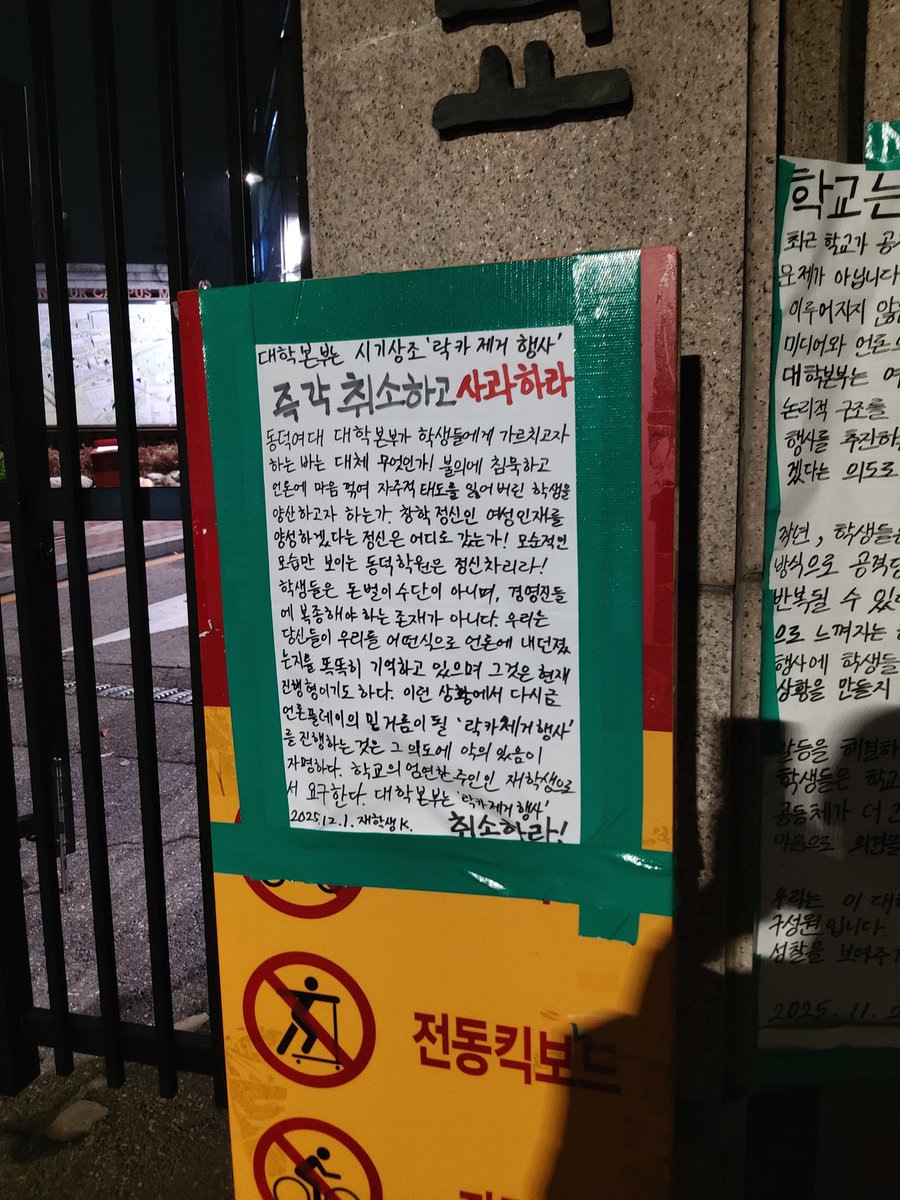 교
CAMPUS M
대학본부는 시기상조 '락카 제거 행사'
즉각 취소하고 사과하라
동덕여대 대학본부가 학생들에게 가르치고자
하는 바는 대체 무엇인가! 불의에 침묵하고
언론에 마음 꺾여 자주적 태도를 잃어버린 학생을
양산하고자 하는가. 창학정신인 여성인재를
양성하겠다는 정신은 어디로 갔는가! 모순적인
모습만 보이는 동덕학원은 정신차리라!
학생들은 돈벌이수단이 아니며, 경영진들
에 복종해야 하는 존재가 아니다. 우리는
당신들이 우리를 어떤식으로 언론에 내던졌
는지를 똑똑히 기억하고 있으며 그것은 현재
진행형이기도 하다. 이런 상황에서 다시금
언론플레이의 밑거름이 될 '락카제거행사'
를 진행하는 것은 그 의도에 악의 있음이
자명하다. 학교의 엄연한 주인인 재학생으로
서 요구한다. 대학본부는 '락카 제거 행사'
2025.12.1. 재학생 K. 취소하라!
전동킥보드
학교는
최근 학교가 공
문제가 아닙니다
이루어지지 않
미디어와 언론
대학본부는 여
논리적 구조를
행사를 추진하
겠다는 의도로
작년, 학생들은
방식으로 공격당
반복될 수 있
으로 느껴지는
행사에 학생들
상황을 만들지
갈등을 해결하
학생들은 학교
공동체가 더
마음으로 의견을
우리는 이 대
구성원입니다.
성찰을 보여주
2025. 11. 2